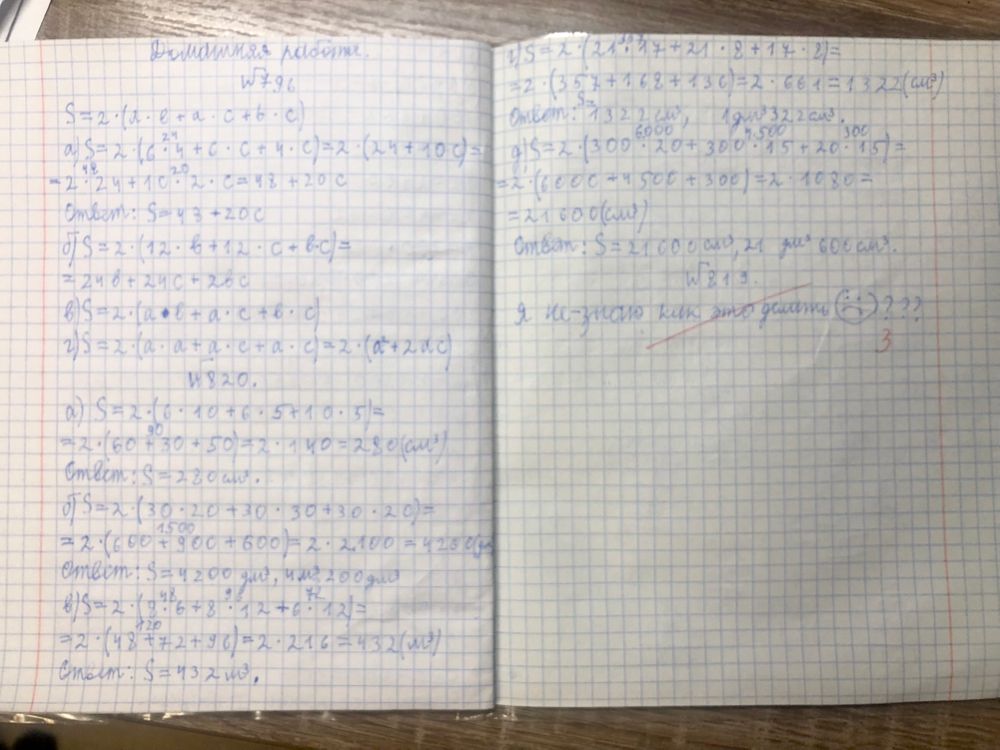 Домашняя работа.
№796
S=2·(а·в+а·с+b·с)
24
а) S=2·(6·4+6·с+4·с)=2·(24+10с)=
48 20
=2·24+10·2·с=48+20с
Ответ: S=48+20с
б) S=2·(12·в+12·с+в·с)=
=24в+24с+2вс
в) S=2·(а·b+а·с+b·с)
г) S=2·(а·а+а·с+а·с)=2·(а²+2ас)
№820.
а) S=2·(6·10+6·5+10·5)=
90
=2·(60+30+50)=2·140=280(см³)
Ответ: S=280см³.
б) S=2·(30·20+30·30+30·20)=
1500
=2·(600+900+600)=2·2100=4200(дм
Ответ: S=4200дм³, 4м³ 200дм³
48 96 72
в) S=2·(8·6+8·12+6·12)=
120
=2·(48+72+96)=2·216=432(м³)
Ответ: S=432м³.
г) S=2·(21·17+21·8+17·8)=
=2·(357+168+136)=2·661=1322(см³)
S=
Ответ: 1322см³, 1дм³322см³.
6000 4500 300
д) S=2·(300·20+300·15+20·15)=
=2·(6000+4500+300)=2·1080=
=21600(см³)
Ответ: S=21600см³, 21 дм³ 600см³.
№819.
Я не знаю как это делать ???
3